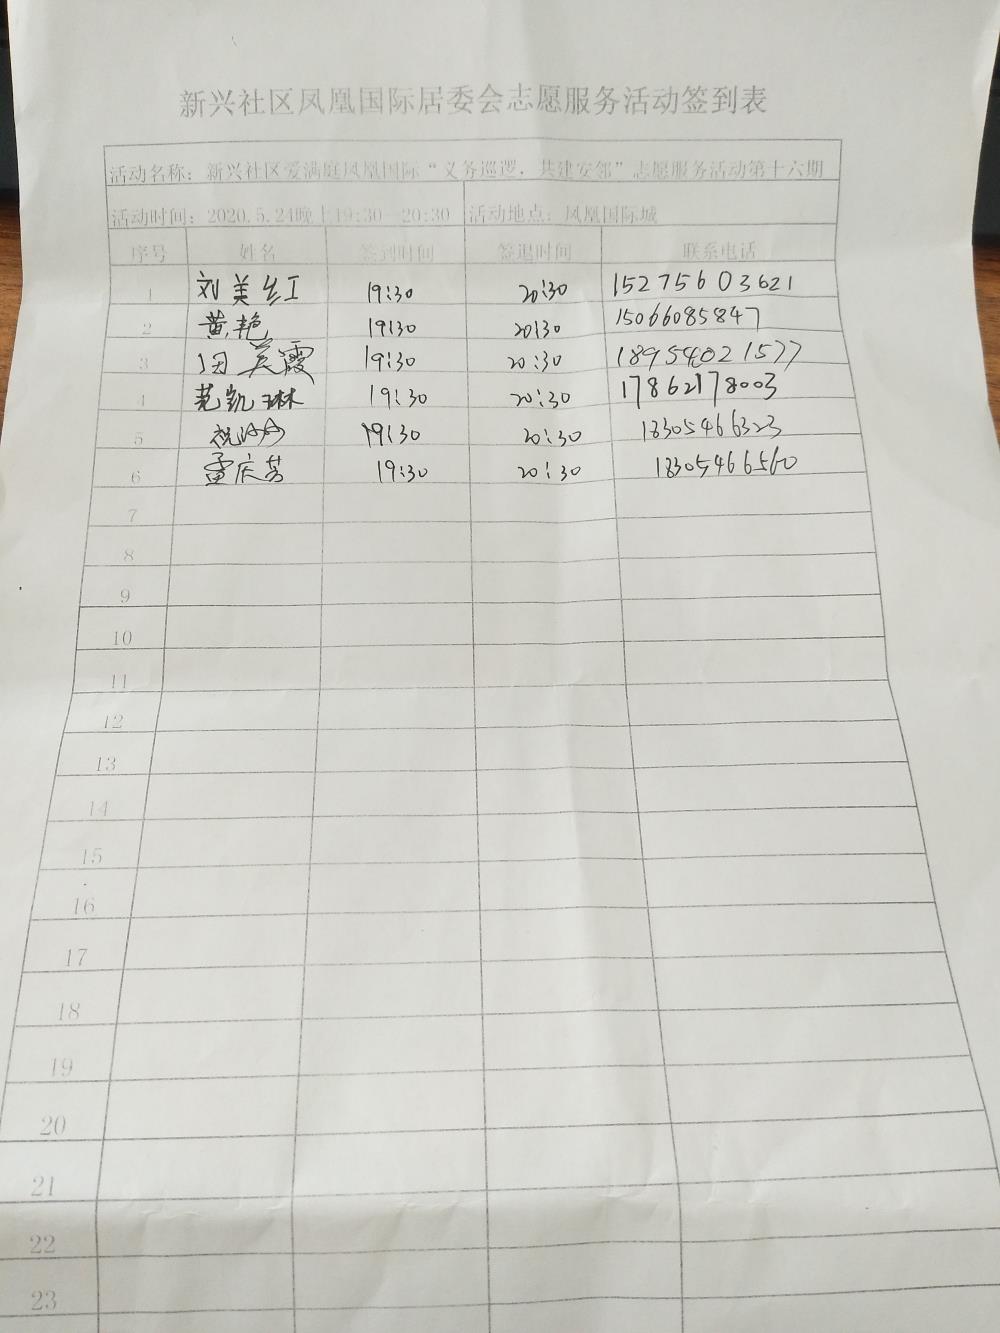 新兴社区凤凰国际居委会志愿服务活动签到表
活动名称：新兴社区爱满庭凤凰国际“义务巡逻，共建安邻”志愿服务活动第十六期
活动时间：2020.5.24晚上19:30—20:30 活动地点：凤凰国际城
序号 姓名 签到时间 签退时间 联系电话
1 刘美红 19:30 20:30 15275603621
2 黄艳 19:30 20:30 15066085847
3 田美霞 19:30 20:30 18954021577
4 范凯琳 19:30 20:30 17862178003
5 祝 19:30 20:30 18305466323
6 孟庆芳 19:30 20:30 18305466560
7
8
9
10
11
12
13
14
15
16
17
18
19
20
21
22
23